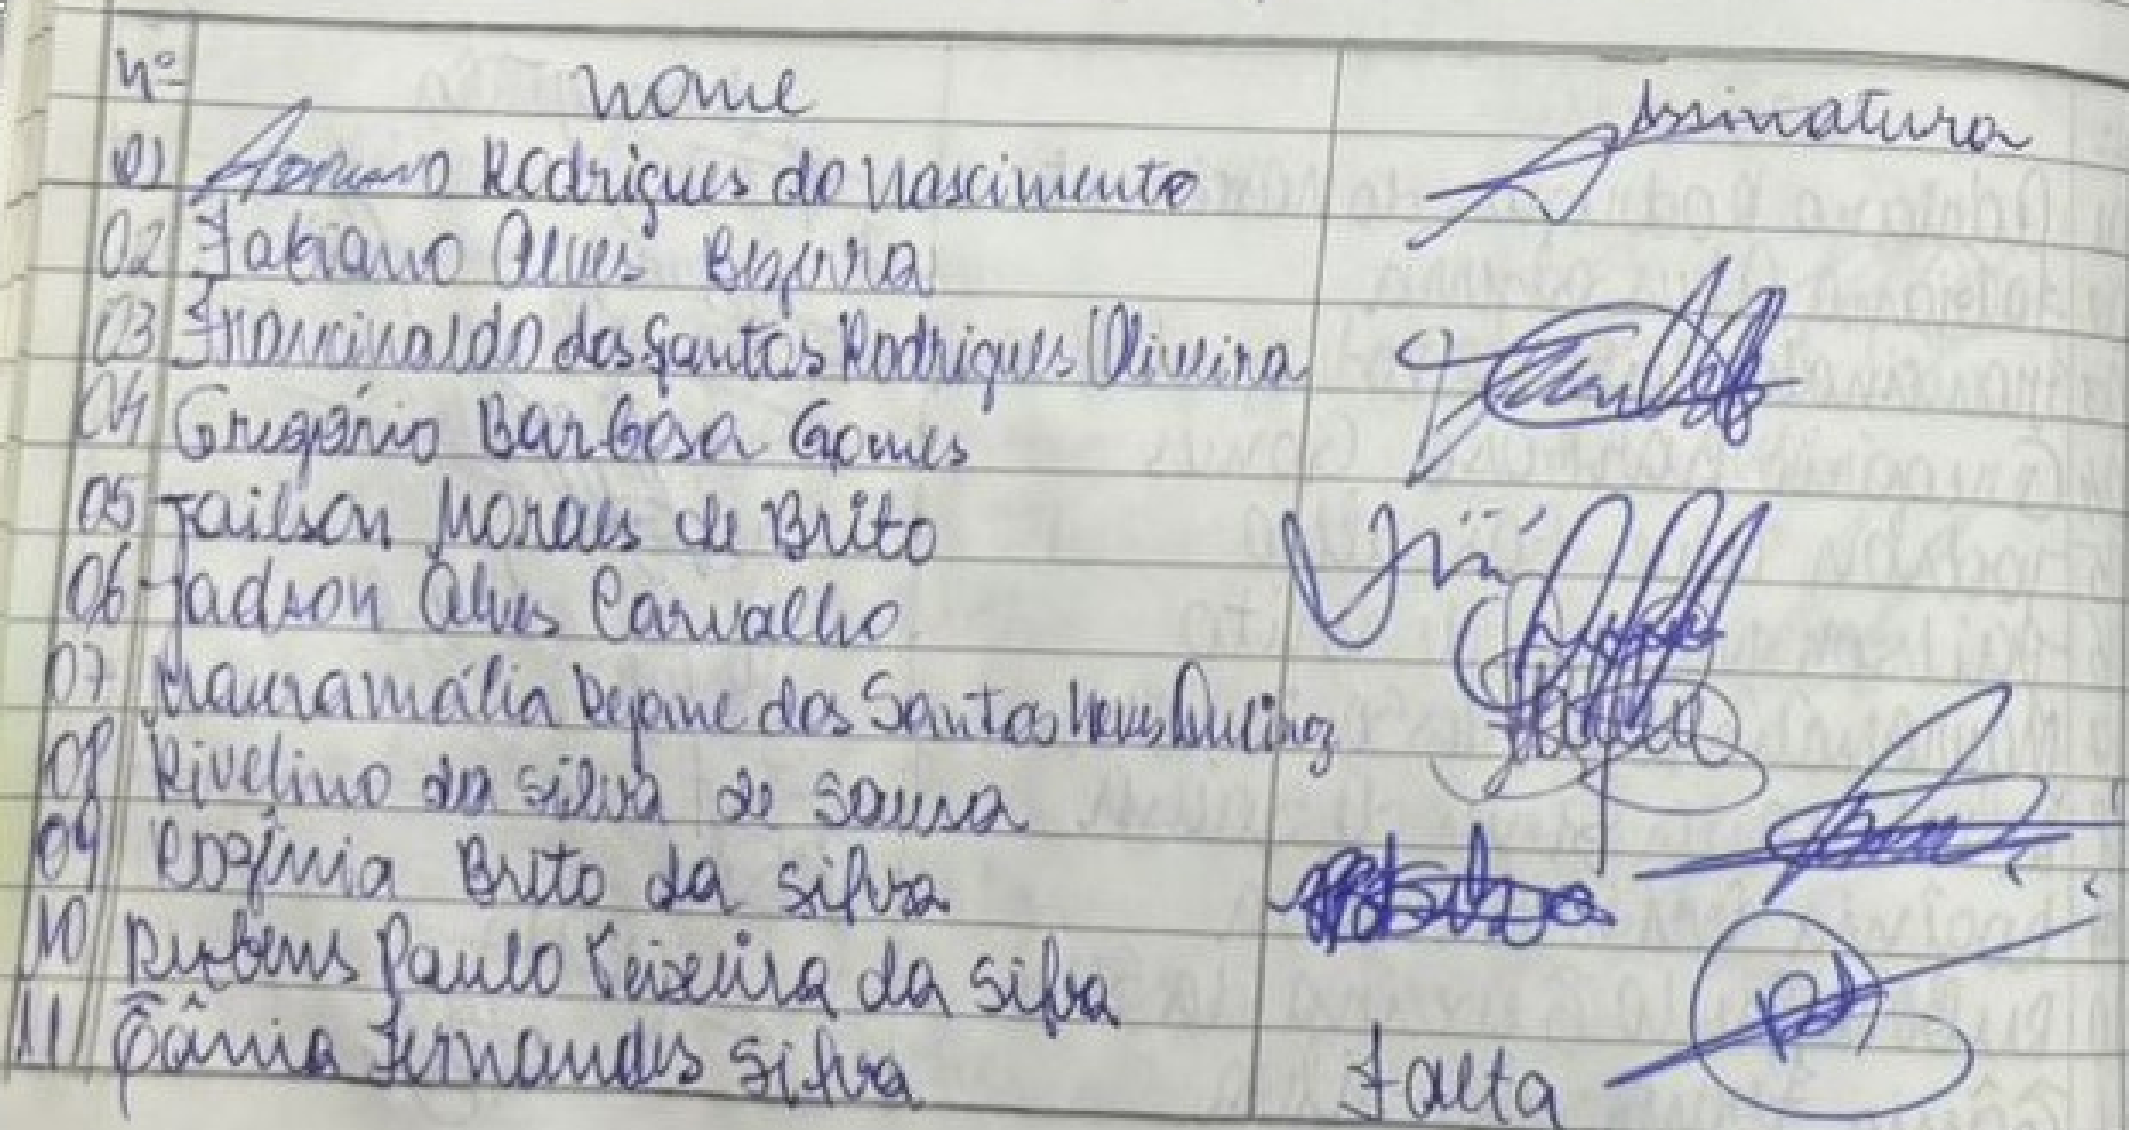 Nº Nome Assinatura
01 Adriano Rodrigues do Nascimento
02 Fabiano Alves Bezerra
03 Francinaldo dos Santos Rodrigues Oliveira
04 Gregório Barbosa Gomes
05 Jailson Moraes de Brito
06 Jadson Alves Carvalho
07 Mauramália Dejane dos Santos Neves
08 Rivelino da Silva de Sousa
09 Rozênia Brito da Silva
10 Rubens Paulo Teixeira da Silva
11 Tânia Fernandes Silva Falta